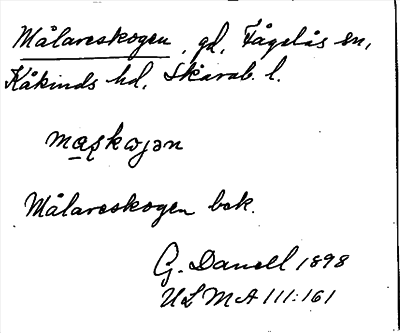 Målareskogen, gd, Fågelås sn,
Kåkinds hd, Skarab. l.
Målareskogen bek.
G. Danell 1898
ULMA 111:161